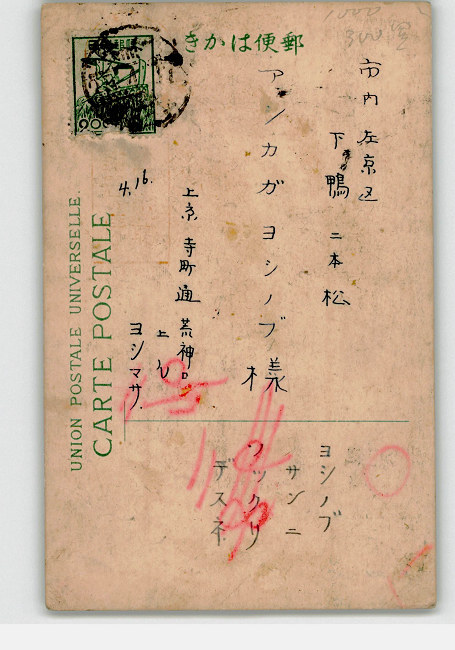 きかは便郵
市内左京区
下鴨 二本松
アシカガヨシノブ様
上京 寺町通 荒神口
上ル
ヨシマサ
4.16.
ヨシノブ
サンニ
ソックリ
デスネ
UNION POSTALE UNIVERSELLE
CARTE POSTALE